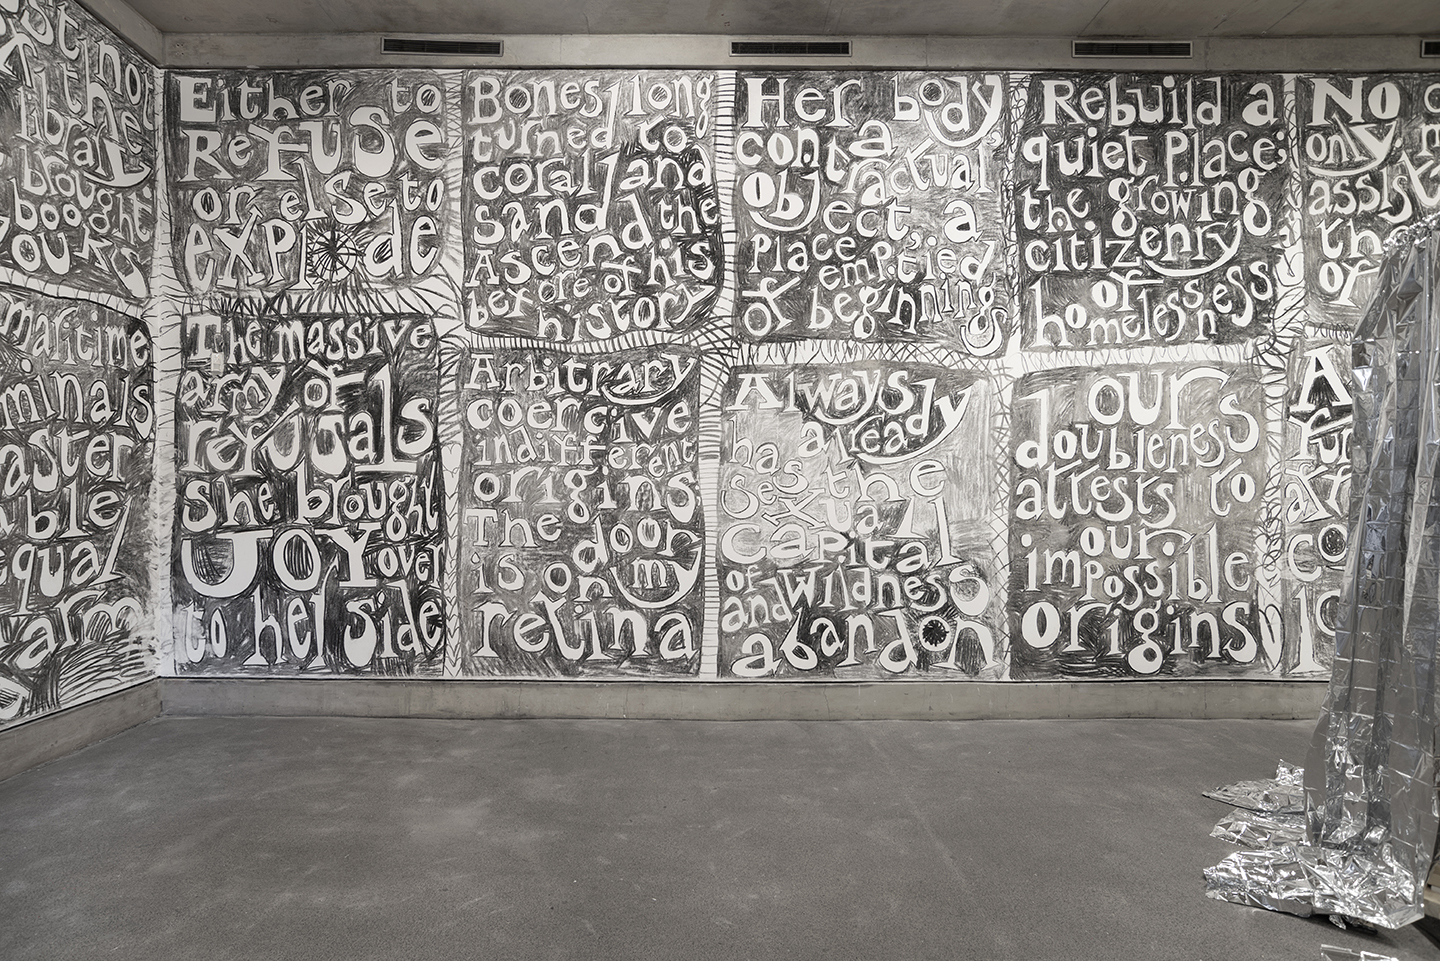 not
the
library
brought
books
maritime
Either to
Refuse
or else to
explode
The massive
army of
refusals
she brought
JOY over
to her side
Bones long
turned to
coral and
sand the
Ascend
before his
history
Arbitrary
coercive
indifferent
origins
The door
is on my
retina
Her body,
a
contractual
object, a
place emptied
of beginnings
Always
already
has the
sexual
capital
of wildness
and
abandon
Rebuild a
quiet place;
the growing
citizenry
of
homelessness
our
doubleness
attests to
our
impossible
origins
No
only
assist
or
A